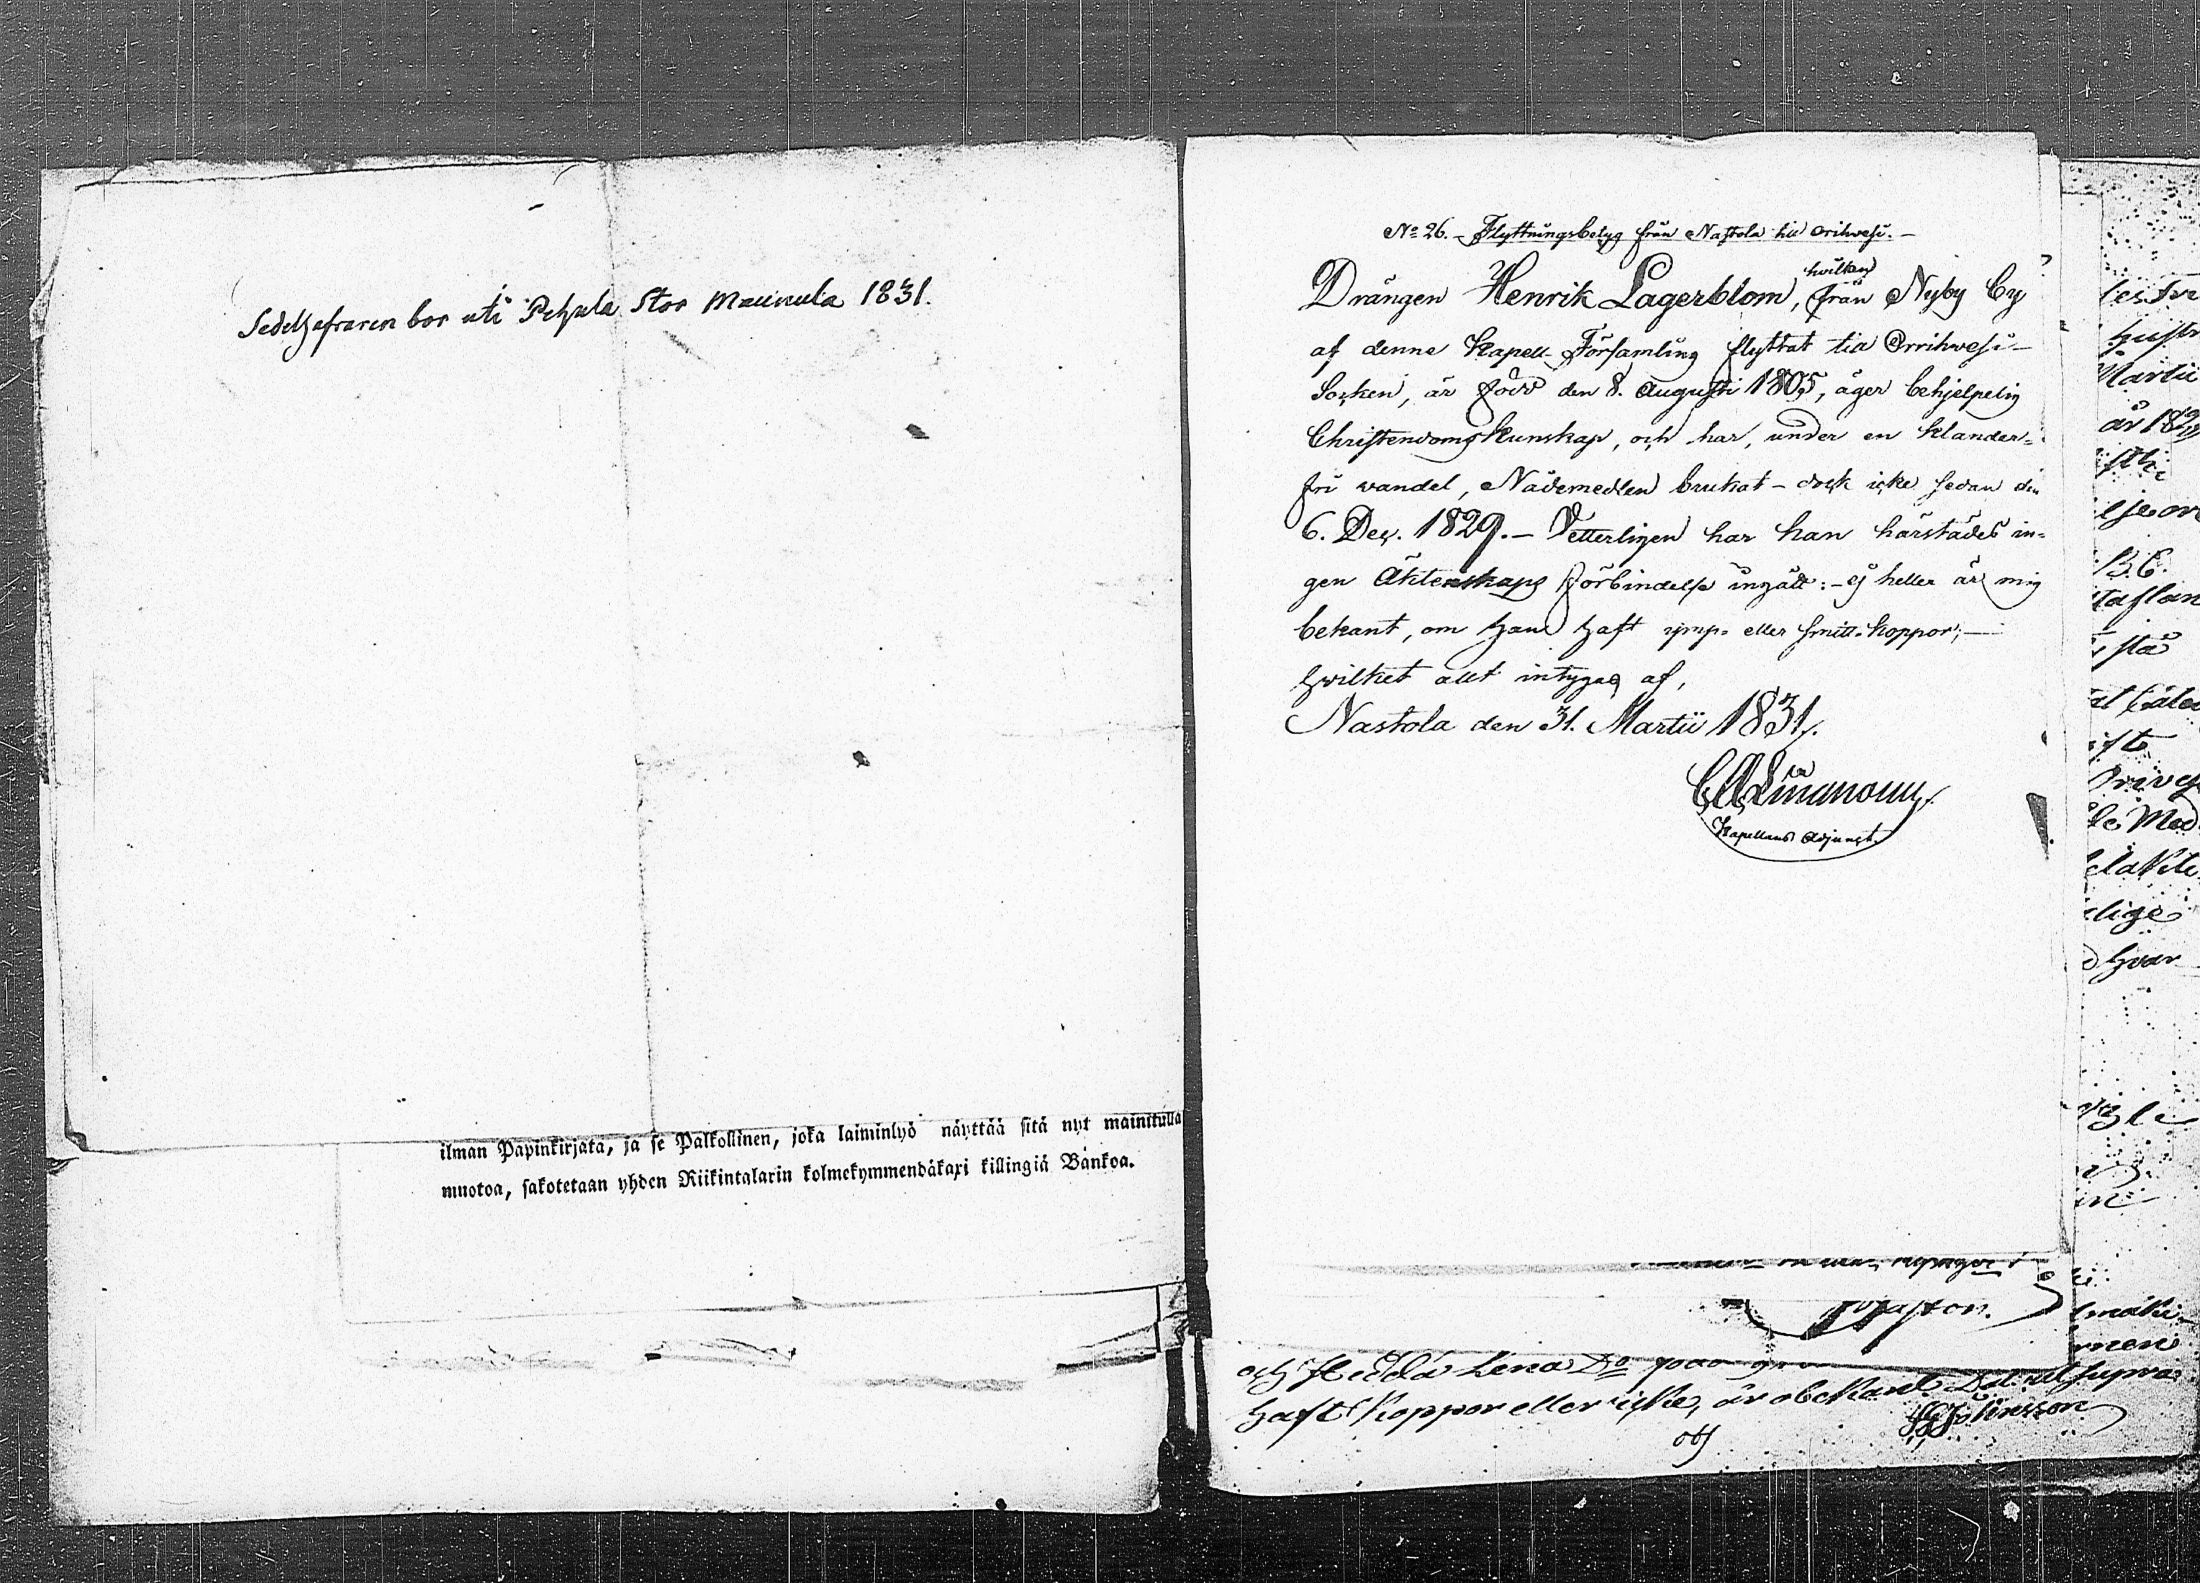 Sedelhafraren bor uti Pehula Stor Maunula 1831.
ilman Papinkirjata, ja se Palkollinen, joka laiminlyö näyttää sitä nyt mainitulla
muotoa, sakotetaan yhden Riikintalarin kolmekymmendäkaxi killingiä Bankoa.
No 26. - Flyttningsbetyg från Nastola till Orihvesi. -
Drängen Henrik Lagerblom, hvilken från Nyby by
af denne Kapell-Församling flyttat till Orrihvesi-
Socken, är född den 8. Augusti 1805, äger behjelpelig
Christendoms Kunskap, och har, under en klander-
fri vandel, Nådemedlen brukat - dock icke sedan den
6. Dec. 1829. - Vetterligen har han härstädes in-
gen Äktenskaps förbindelse ingått: - ej heller är mig
bekant, om han haft ymp- eller smitt-koppor; -
hvilket allt intygas af,
Nastola den 31. Martii 1831.
Kapellans Adjunct.
och Hedda Lena Do
haft Koppor eller icke, är obekant Dat. ut supra
les
hust
Martii
år 18
B.C.
taflan
stå
ift
Med
elige
hvar
mäki